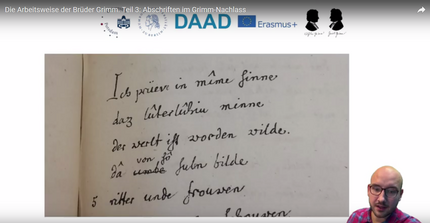 Die Arbeitsweise der Brüder Grimm. Teil 3: Abschriften im Grimm-Nachlass
DAAD Erasmus+
Ich prüeve in mîme sinne
daz lûterlîchiu minne
der werlt ist worden wilde.
dâ von sô
umbe suln bilde
5 ritter unde frouwen